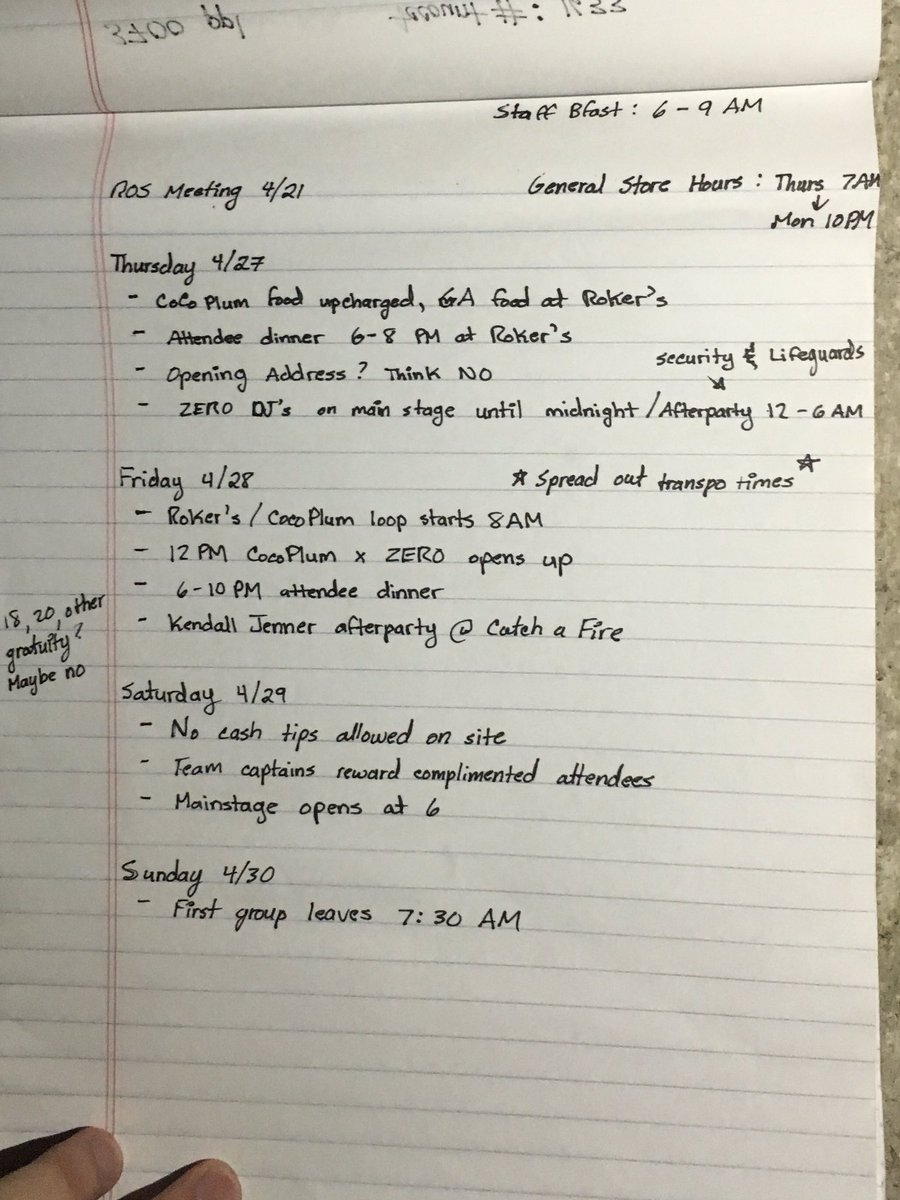 3700 ppl
Staff Bfast: 6-9 AM
ROS Meeting 4/21
General Store Hours: Thurs 7AM
↓
Mon 10PM
Thursday 4/27
- CoCo Plum food upcharged, GA food at Roker's
- Attendee dinner 6-8 PM at Roker's
- Opening Address? Think NO
security & Lifeguards
- ZERO DJ's on main stage until midnight / Afterparty 12-6 AM
Friday 4/28
☆ Spread out transpo times ☆
- Roker's / CocoPlum loop starts 8AM
- 12 PM CocoPlum x ZERO opens up
- 6-10 PM attendee dinner
- Kendall Jenner afterparty @ Catch a Fire
18, 20, other
gratuity?
Maybe no
Saturday 4/29
- No cash tips allowed on site
- Team captains reward complimented attendees
- Mainstage opens at 6
Sunday 4/30
- First group leaves 7:30 AM